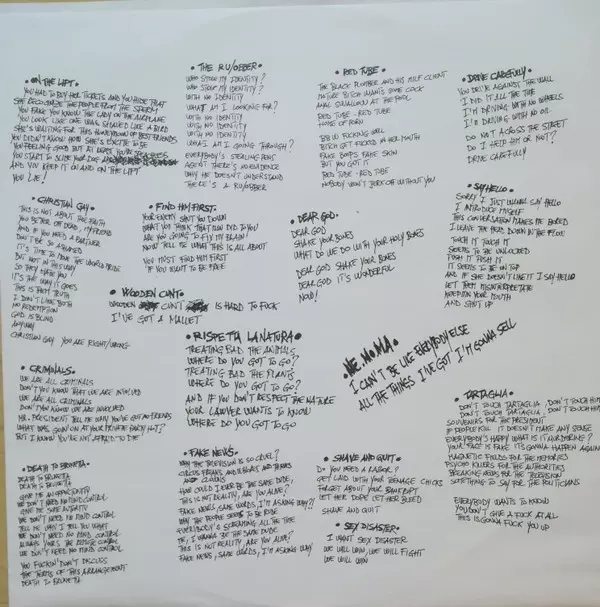 • ON THE LIFT •
YOU HAD TO BUY HER TICKETS AND YOU HIDE THAT
SHE RECOGNIZE THE PEOPLE FROM THE SPERM
YOU FAKE YOU KNOW THE LADY ON THE AIRPLANE
YOU LOOK LIKE ONE WAS SMOKED LIKE A BIRD
SHE'S WAITING FOR THIS HONEYMOON OF BEST FRIENDS
YOU DIDN'T KNOW HOW SHE'S EXCITE TO BE
YOU FEELING GOOD BUT AT LEAST YOU'RE
YOU START TO
AND YOU KEEP IT GO AND ON THE LIFT
YOU LIE!
• THE RU/OBBER •
WHO STOLE MY IDENTITY?
WHO STOLE MY IDENTITY?
WITH NO IDENTITY
WHAT AM I LOOKING FOR?
WITH NO IDENTITY
WITH NO IDENTITY
WITH NO IDENTITY
WHAT AM I GOING THROUGH?
EVERYBODY'S STEALING
AGENT THERE'S NO EVIDENCE
WHY HE DOESN'T UNDERSTAND
THERE'S A RU/OBBER
• RED TUBE •
THE BLACK PLUMBER AND HIS MILF CLIENT
PICTURE THE SON WANTS SOME COCK
ANAL SWALLOW AT THE POOL
RED TUBE - RED TUBE
HOME OF PORN
BBW FUCKING WALL
BITCH GET FUCKED IN HER MOUTH
FAKE BOOBS FAKE SKIN
BUT YOU GOT IT
RED TUBE - RED TUBE
NOBODY WON'T JERK OFF WITHOUT YOU
• DRIVE CAREFULLY •
YOU DRIVE AGAINST THE WALL
I DID IT ALL THE TIME
I'M DRIVING WITH NO WHEELS
I'M DRIVING WITH NO OIL
DO NOT ACROSS THE STREET
DO I HELP HIT OR NOT?
DRIVE CAREFULLY
• CHRISTIAN GAY •
THIS IS NOT ABOUT THE FAITH
YOU BETTER OFF DEAD, MY FRIEND
AND IF YOU MEET A PARTNER
DON'T BE SO ASHAMED
IT'S TIME TO MAKE THE WORLD PRIDE
BUT NOT IN THIS WAY
SO THEY HATE YOU
IT'S THE WAY IT GOES
THIS IS THEIR TRUTH
I DON'T LIKE BOTH
NO REDEMPTION
GOD IS BLIND
ANYWAY
CHRISTIAN GAY YOU ARE RIGHT/WRONG
• FIND HIM FIRST •
YOUR ENEMY SHUT YOU DOWN
WHAT YOU THINK THAT MAN DID TO YOU
ARE YOU GOING TO FIX MY BRAIN?
NOW TELL ME WHAT THIS IS ALL ABOUT
YOU MUST FIND HIM FIRST
IF YOU WANT TO BE FREE
• DEAR GOD •
DEAR GOD
SHAKE YOUR BONES
WHAT DO WE DO WITH YOUR HOLY BONES
DEAR GOD SHAKE YOUR BONES
DEAR GOD IT'S WONDERFUL
NOW!
• SAY HELLO •
SORRY I JUST WANNA SAY HELLO
I INTRODUCE MYSELF
THIS CONVERSATION MAKES ME BORED
I LEAVE THE DEAD DOWN IN THE FLOOR
TOUCH IT TOUCH IT
IT SEEMS TO BE UNLOCKED
PUSH IT PUSH IT
IT SEEMS TO BE ON TOP
AND IF SHE DOESN'T LIKE IT I SAY HELLO
LET THEM MISINTERPRETATE
KEEP ON YOUR MOUTH
AND SHUT UP
• WOODEN CUNT •
WOODEN CUNT IS HARD TO FUCK
I'VE GOT A MALLET
• RISPETTA LA NATURA •
TREATING BAD THE ANIMALS
WHERE DO YOU GOT TO GO?
TREATING BAD THE PLANTS
WHERE DO YOU GOT TO GO?
AND IF YOU DON'T RESPECT THE NATURE
YOUR LAWYER WANTS TO KNOW
WHERE DO YOU GOT TO GO
• ME.MO.MA. •
I CAN'T BE LIKE EVERYBODY ELSE
ALL THE THINGS I'VE GOT I'M GONNA SELL
• CRIMINALS •
WE ARE ALL CRIMINALS
DON'T YOU KNOW THAT WE ARE INVOLVED
WE ARE ALL CRIMINALS
DON'T YOU KNOW WE ARE INVOLVED
MR. PRESIDENT TELL ME WHY YOU'VE GOT NO FRIENDS
WHAT WAS GOIN' ON AT YOUR PRIVATE PARTY, HOT?
BUT I KNOW YOU'RE NOT AFRAID TO DIE
• TARTAGLIA •
DON'T TOUCH TARTAGLIA, DON'T TOUCH HIM
DON'T TOUCH TARTAGLIA, DON'T TOUCH HIM
SOUVENIRS FOR THE PRESIDENT
IF PEOPLE KILL IT DOESN'T MAKE ANY SENSE
EVERYBODY'S HAPPY WHAT IS IT MURMURING?
YOUR FACE IS FAKE IT'S GONNA HAPPEN AGAIN
MAGNETIC FIELDS FOR THE MEMORIES
PSYCHO KILLERS FOR THE AUTHORITIES
BREAKING NEWS FOR THE TELEVISION
SOMETHING TO SAY FOR THE POLITICIANS
EVERYBODY WANTS TO KNOW
YOU DON'T GIVE A FUCK AT ALL
THIS IS GONNA FUCK YOU UP
• DEATH TO BRUNETTA •
DEATH TO BRUNETTA
DEATH TO BRUNETTA
GIVE ME AN OPPORTUNITY
WE DON'T NEED NO MIND CONTROL
GIVE ME SOME
WE DON'T NEED NO MIND CONTROL
TELL ME WHY I TELL YOU WHAT
WE DON'T NEED NO MIND CONTROL
ALWAYS YOURS THE REMOTE CONTROL
WE DON'T NEED NO MIND CONTROL
YOU FUCKIN' DON'T DISCUSS
THE TERMS OF THIS ARRANGEMENT
DEATH TO BRUNETTA
• FAKE NEWS •
WHY THE TELEVISION IS SO CRUEL?
CIRCUS FREAKS AND
AND CLOWNS
HOW COULD I EVER BE THE SAME DUDE,
THIS IS NOT REALITY, ARE YOU ALIVE?
FAKE NEWS, SAME WORDS, I'M ASKING WHY?!
WHY THE PEOPLE SEEMS TO BE RUDE
EVERYBODY'S SCREAMING ALL THE TIME
MR, I WANNA BE THE SAME DUDE
THIS IS NOT REALITY ARE YOU ALIVE?
FAKE NEWS, SAME WORDS, I'M ASKING WHY
• SHAVE AND QUIT •
DO YOU NEED A RAZOR?
GET LAID WITH YOUR TEENAGE CHICKS
FORGET ABOUT YOUR BANKRUPT
LET HER DOPE LET HER BLEED
SHAVE AND QUIT
• SEX DISASTER •
I WANT SEX DISASTER
WE WILL WIN, WE WILL FIGHT
WE WILL WIN